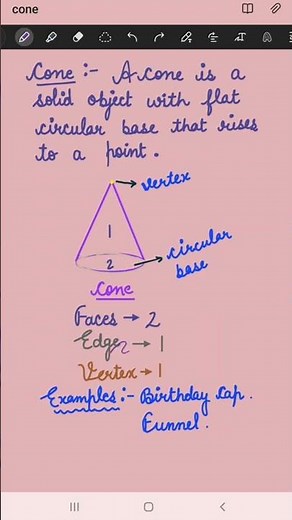 cone
Cone :- A cone is a
solid object with flat
circular base that rises
to a point.
vertex
1
2
circular
base
Cone
Faces → 2
Edge2 → 1
Vertex → 1
Examples :- Birthday cap.
Funnel.